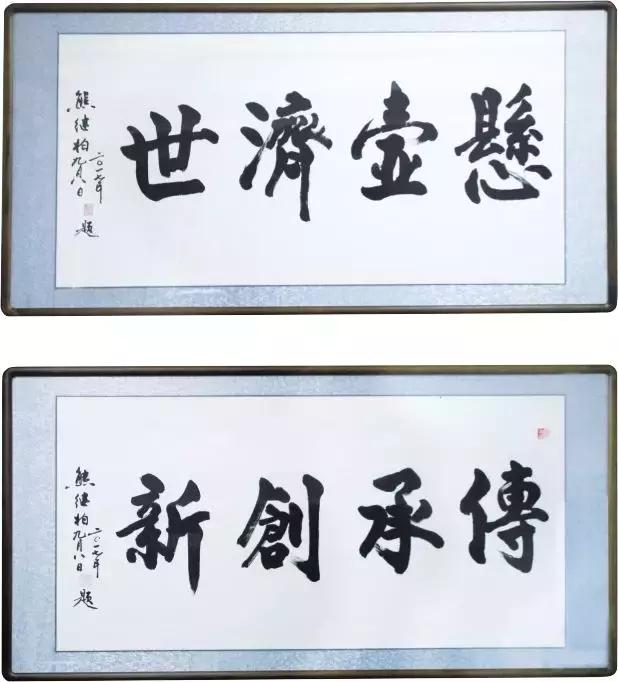 懸壺濟世
二〇一七年
熊继柏九月八日題
傳承創新
二〇一七年
熊继柏九月八日題